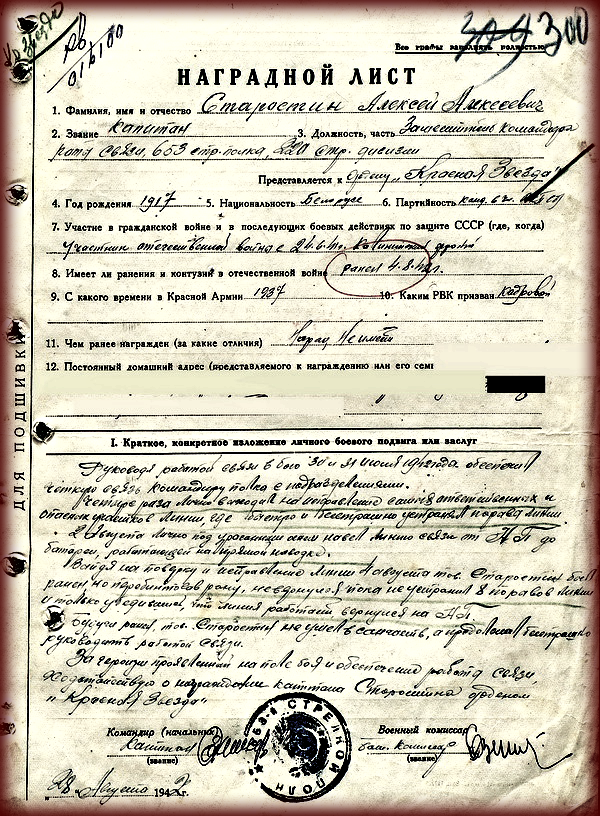 Кр. Звезда
30 9 300
Все графы заполнять полностью
НАГРАДНОЙ ЛИСТ
1. Фамилия, имя и отчество Старостин Алексей Алексеевич
2. Звание капитан 3. Должность, часть Заместитель командира
роты связи, 653 стр. полка, 220 стр. дивизии
Представляется к ордену „Красная Звезда"
4. Год рождения 1917 5. Национальность Белорус 6. Партийность канд. в чл.
7. Участие в гражданской войне и в последующих боевых действиях по защите СССР (где, когда)
Участник отечественной войны с
8. Имеет ли ранения и контузии в отечественной войне ранен 4.8.42г.
9. С какого времени в Красной Армии 1937 10. Каким РВК призван Кадровой
11. Чем ранее награжден (за какие отличия) Наград не имеет
12. Постоянный домашний адрес (представляемого к награждению или его семь
ДЛЯ ПОДШИВКИ
I. Краткое, конкретное изложение личного боевого подвига или заслуг
Руководя работой связи в бою 30 и 31 июля 1942 года обеспечил
четкую связь командиру полка с подразделениями.
Четыре раза лично выходил на исправление самых ответственных и
опасных участков линии, где быстро и бесстрашно устранял порывы линии
2 августа лично под ураганным огнем навел линию связи от НП до
батареи, работающей на прямой наводке.
Выйдя на поверку и исправление линии 4 августа тов. Старостин был
ранен, но не вернулся пока не устранил 8 порывов линии
и только убедившись, что линия работает, вернулся на НП.
Будучи ранен, тов. Старостин не ушел в санчасть, а продолжал бесстрашно
руководить работой связи.
За героизм проявленный на поле боя и обеспечение работы связи
Ходатайствую о награждении капитана Старостина орденом
„Красная Звезда"
Командир (начальник) Военный комиссар
капитан бат. комиссар
(звание) (звание)
653-й СТРЕЛКОВЫЙ ПОЛК
28 „Августа 1942г.